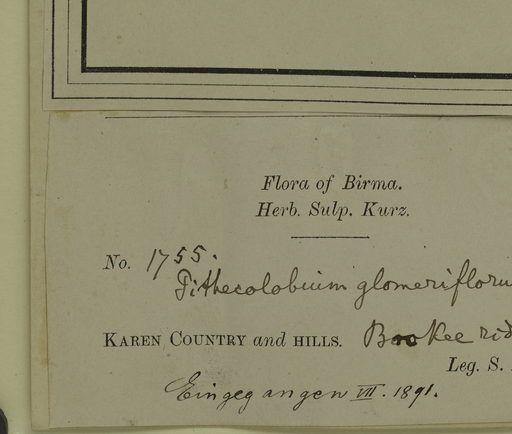 Flora of Birma.
Herb. Sulp. Kurz.
No. 1755.
Pithecolobium glomeriflorum
KAREN COUNTRY and HILLS. Bookee rid
Leg. S.
Eingegangen VII. 1891.